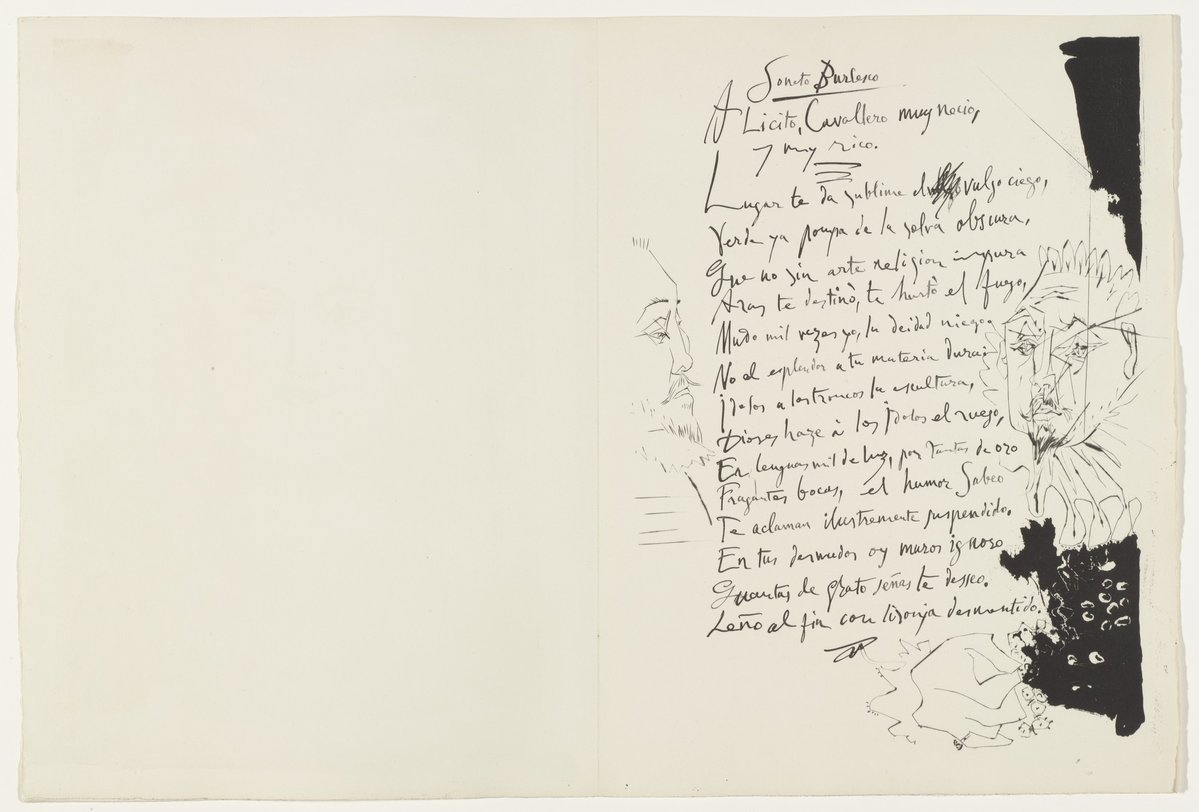 Soneto Burlesco
A Licito, Cavallero muy necio,
y muy rico.
Lugar te da sublime el vulgo ciego,
Verde ya pompa de la selva obscura,
Que no sin arte religion impura
Aras te destinò, te hurtò el fuego,
Mudo mil vezes yo, la deidad niego,
No el esplendor a tu materia dura:
Idolos a los troncos la escultura,
Dioses haze à los Idolos el ruego,
En lenguas mil de luz, por tantas de oro
Fragantes bocas, el humor Sabeo
Te aclaman ilustremente suspendido.
En tus desnudos oy muros ignoro
Quantas de grato señas te desseo.
Leño al fin con lisonja desmentido.